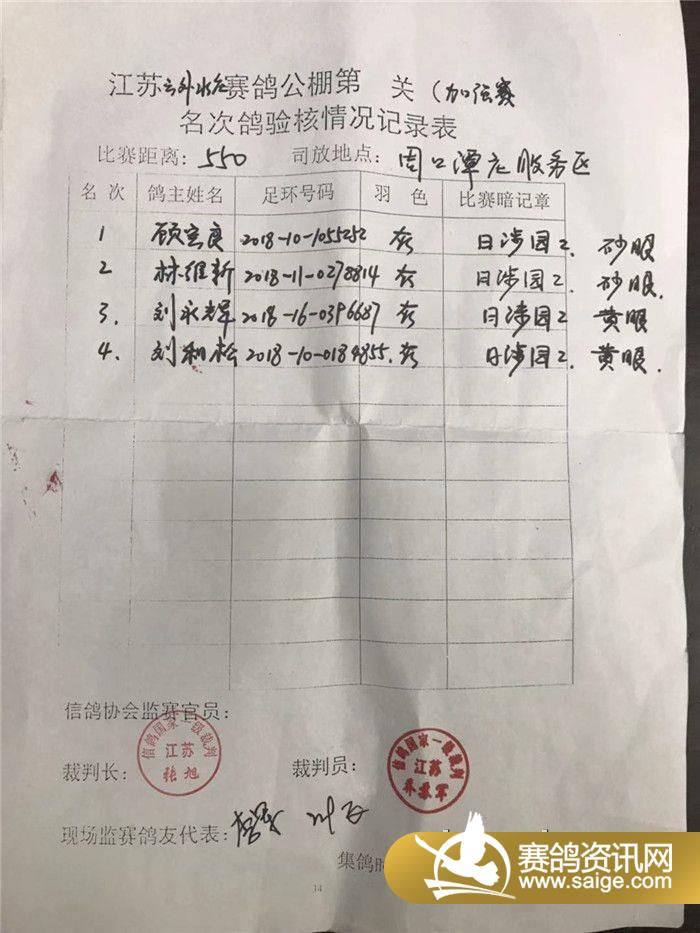 江苏云外水庄赛鸽公棚第 关（加强赛
名次鸽验核情况记录表
比赛距离：550 司放地点：周口谭庄服务区
名次 鸽主姓名 足环号码 羽色 比赛暗记章
1 顾宝良 2018-10-1055252 灰 日涉园2. 砂眼
2 林维新 2018-11-0278814 灰 日涉园2. 砂眼.
3. 刘永辉 2018-16-0396687 灰 日涉园2 黄眼
4. 刘和松 2018-10-0184855. 灰 日涉园2. 黄眼.
信鸽协会监赛官员：
裁判长： 信鸽国家一级裁判 江苏 张旭
裁判员： 信鸽国家一级裁判 江苏
现场监赛鸽友代表：
集鸽时
14
赛鸽资讯网
www.saige.com